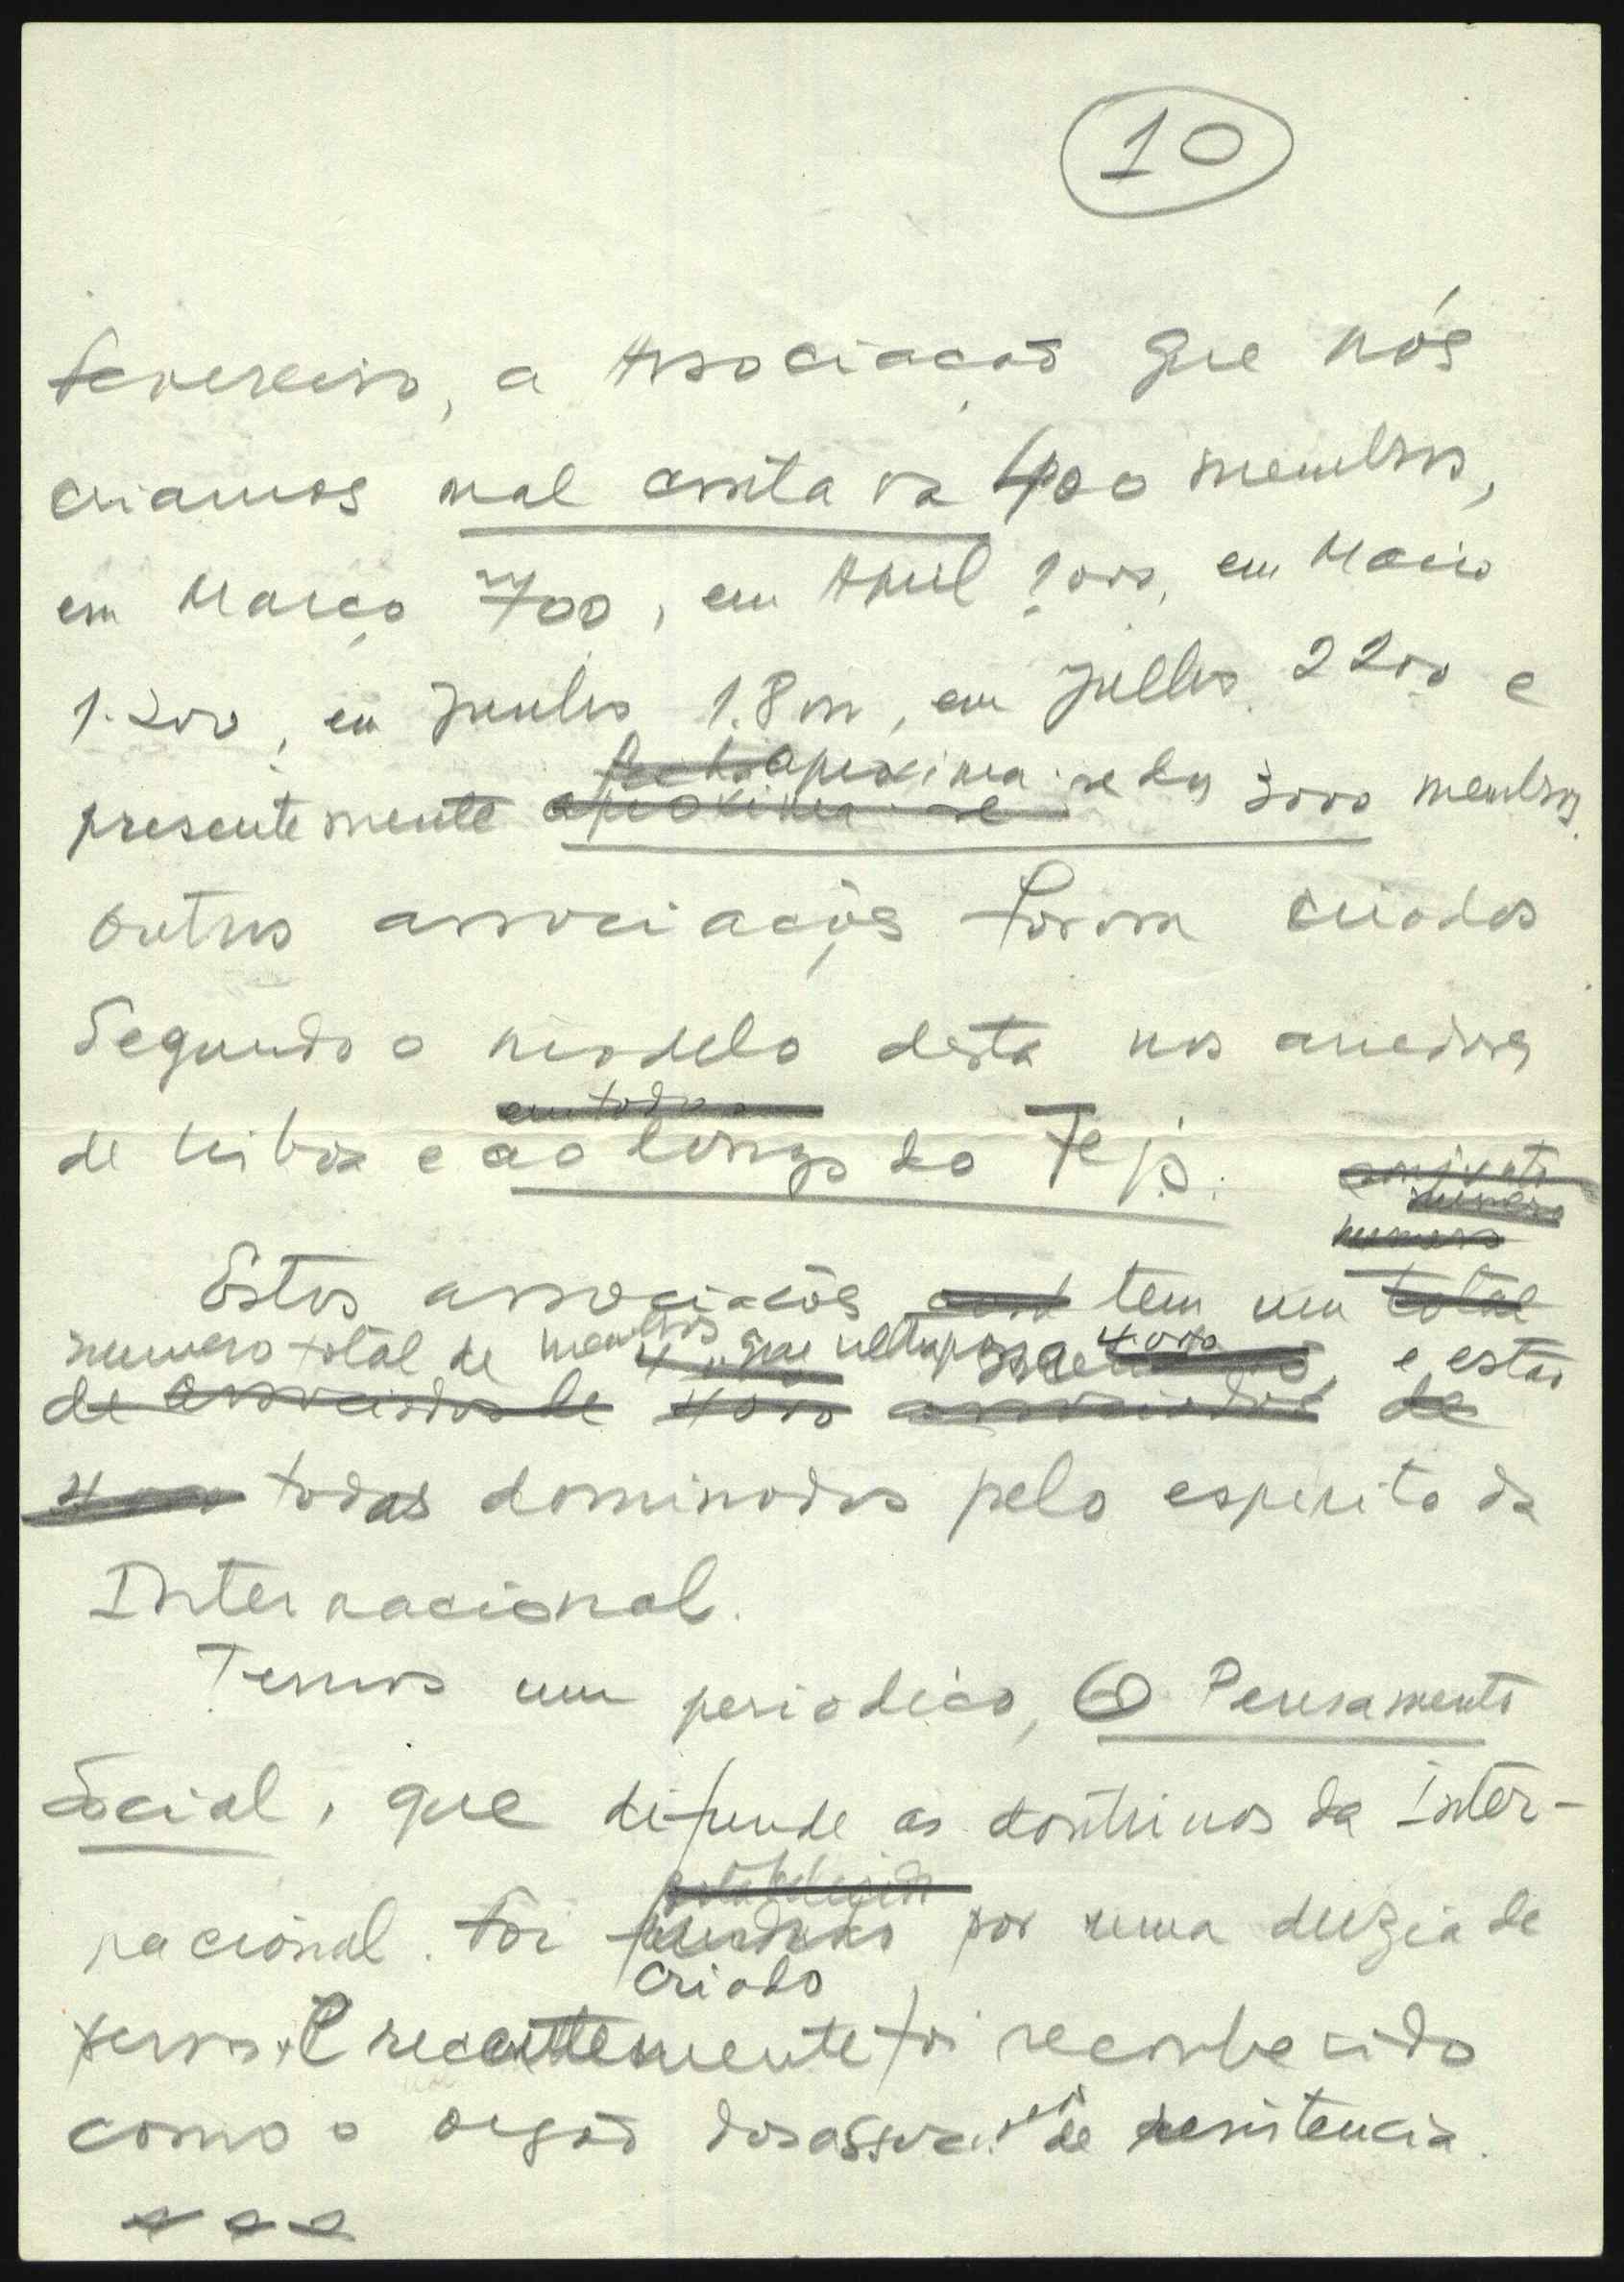 10
fevereiro, a Associação que nós
criamos mal contava 400 membros,
em Março 700, em Abril 1000, em Maio
1.200, em Junho 1.800, em Julho 2200 e
aproxima-se dos 3000 membros.
presentemente aproxima-se
Outras associações foram criadas
Segundo o modelo desta nos arredores
em todo
de Lisboa e ao longo do Tejo.
conjunto
numero
numero
Estas associações tem um total
numero total de membros que ultrapassa 4000, e estão
de associados de 4000 associados de
4000 todas dominadas pelo espirito da
Internacional.
Temos um periodico, O Pensamento
Social, que difunde as doutrinas da Inter-
estabelecido
nacional. Foi fundado por uma duzia de
criado
e recentemente foi reconhecido
como o orgão das associações de resistencia.